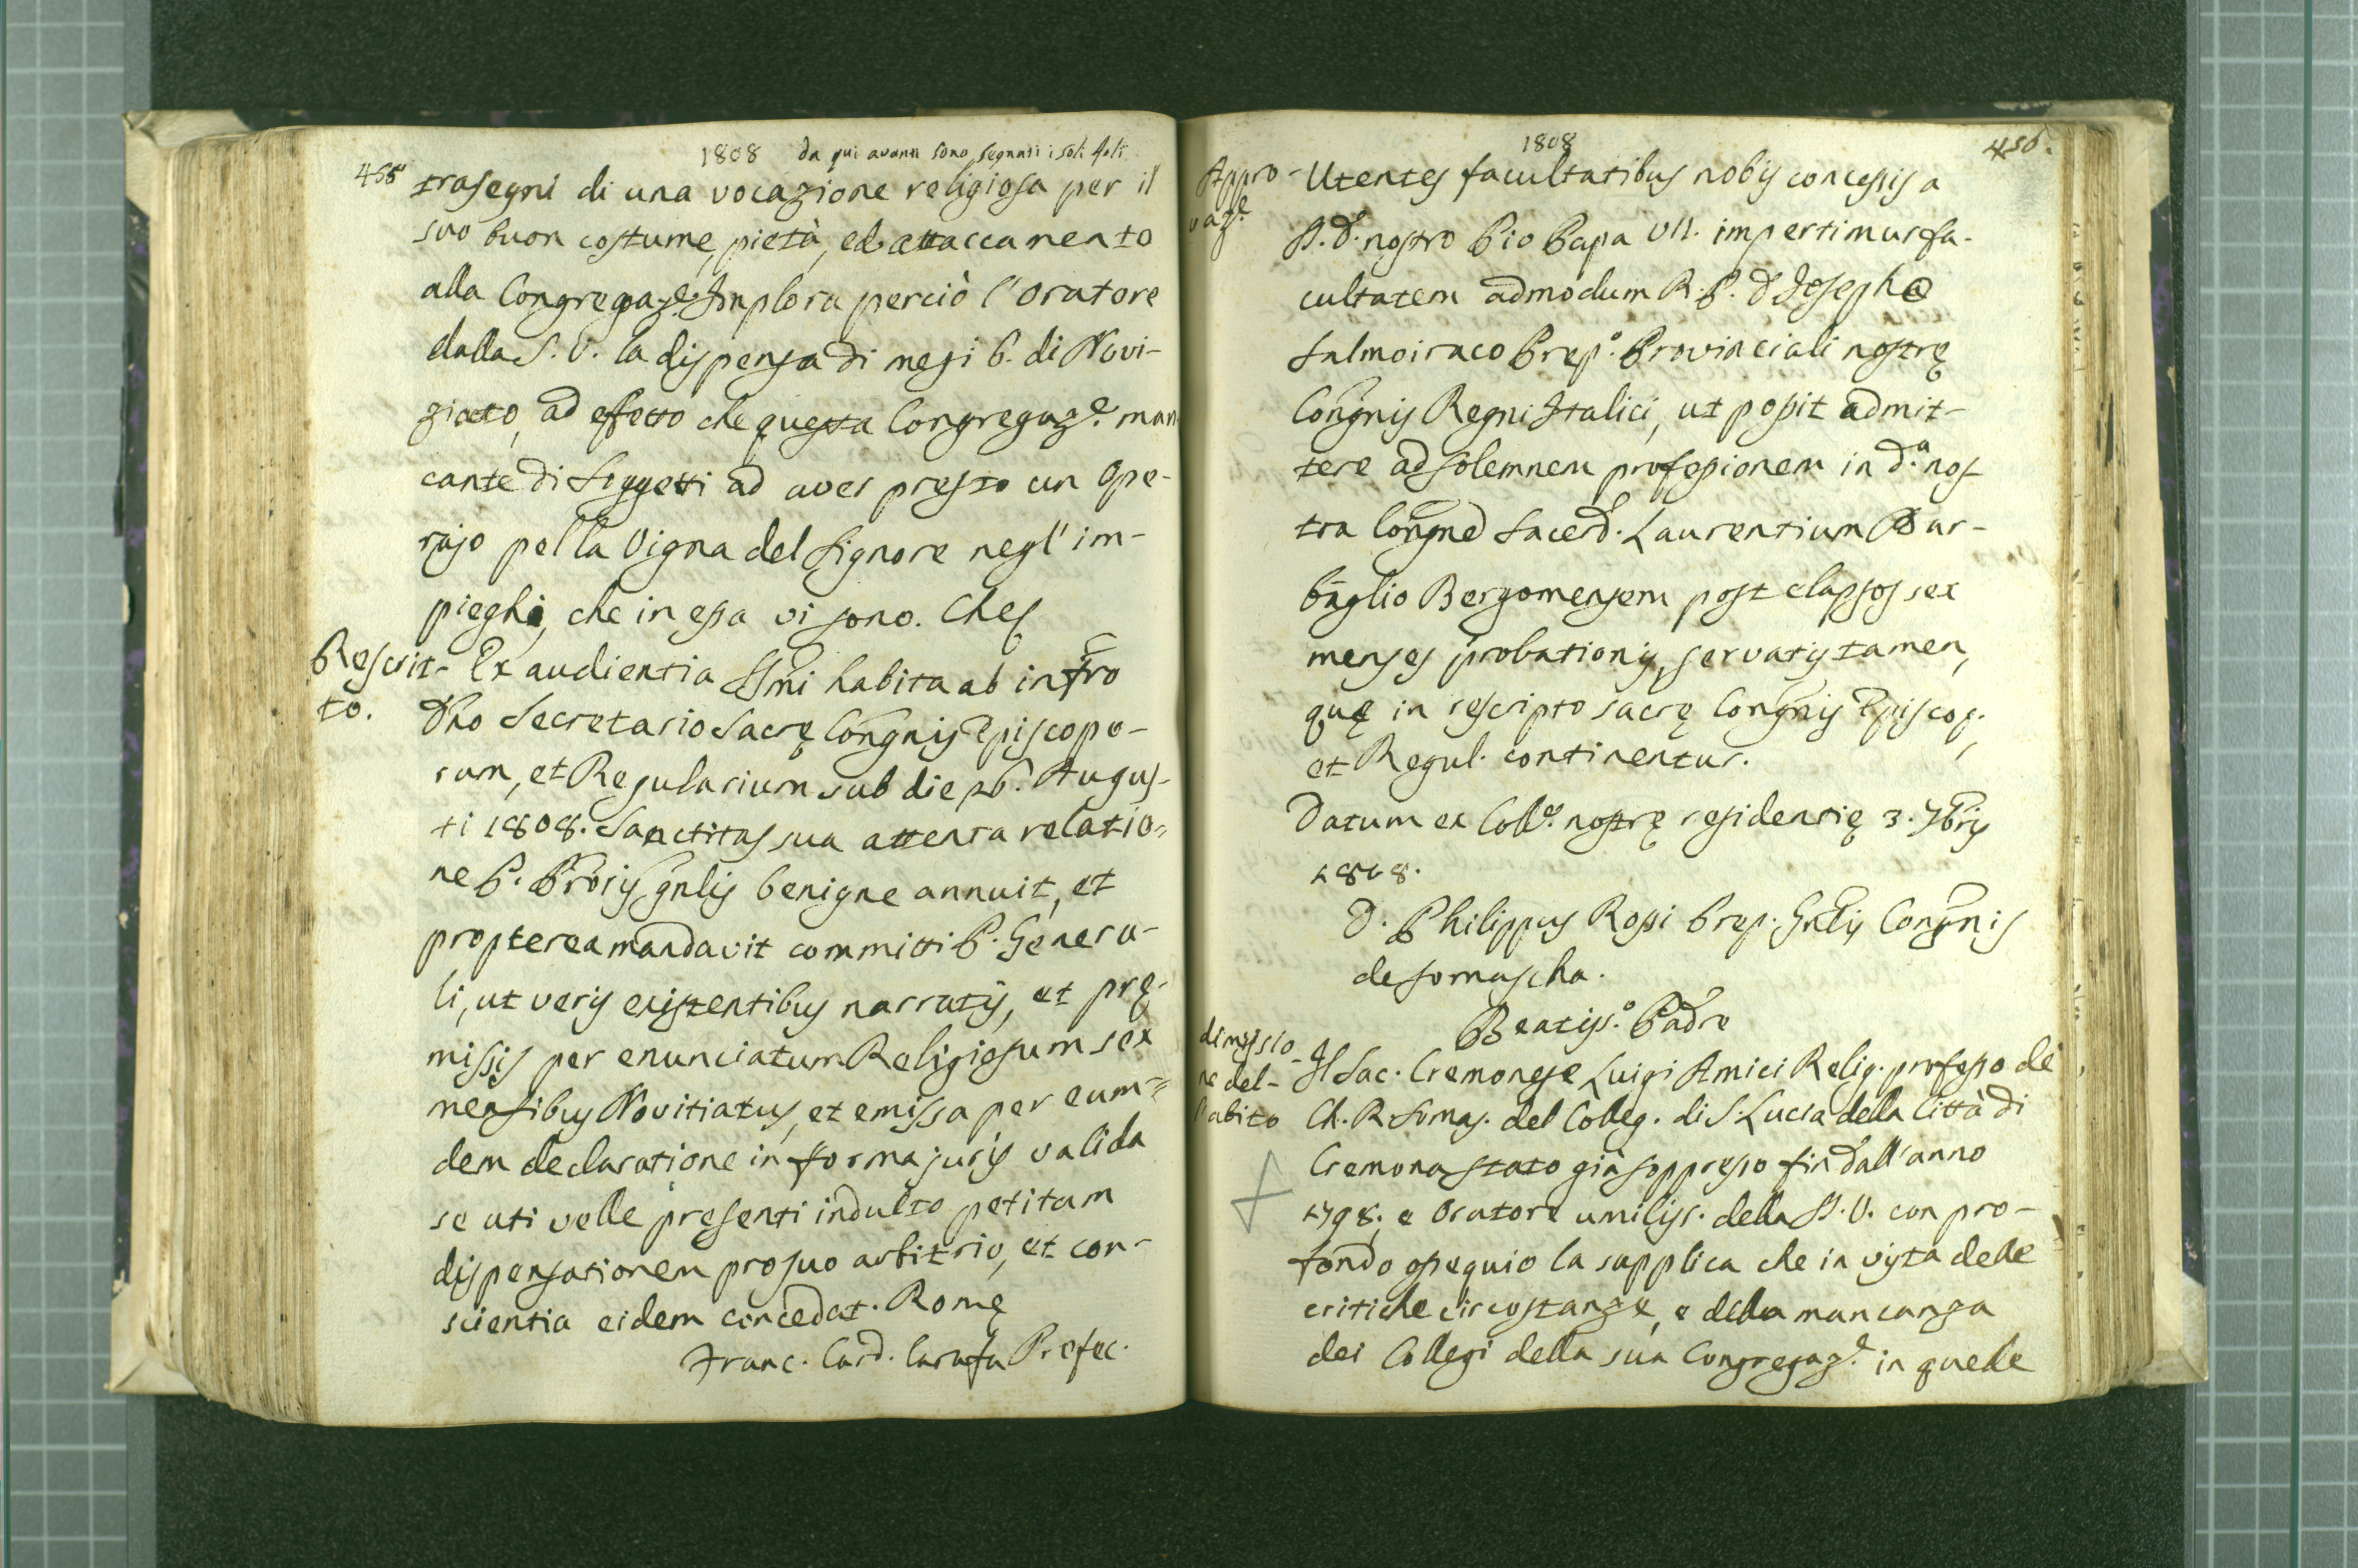 1808 da qui avanti sono segnati i soli foli
455
trasegni di una vocazione religiosa per il
suo buon costume, pietà, ed attaccamento
alla Congregaz.e Implora perciò l'oratore
dalla S. V. la dispensa di mesi 6. di Novi-
ziato, ad effetto che questa Congregaz.e man
cante di Soggetti ad aver presto un Ope-
rajo pella Vigna del Signore negl'im-
pieghi, che in essa vi sono. Che
Rescrit-
to.
Ex audientia SSmi habita ab infro
Dno Secretario Sacrę Congnis Episcopo-
rum, et Regularium sub die 26. Augus-
ti 1808. Sanctitas sua attenta relatio=
ne P. Proris gnlis benigne annuit, et
propterea mandavit committi P. Genera-
li, ut veris existentibus narratis, et prę-
missis per enunciatum Religiosum sex
mensibus Novitiatus, et emissa per eum=
dem declaratione in forma juris valida
se uti velle presenti indulto petitam
dispensationem pro suo arbitrio, et con-
scientia eidem concedat. Romę
Franc. Card. Carafa Prefec.
1808
456.
Appro-
vaz.e
Utentes facultatibus nobis concessis a
S. D. nostro Pio Papa VII. impertimur fa-
cultatem admodum R. P. D Josepho
Salmoiraco Prep.o Provinciali nostrę
Congnis Regni Italici, ut possit admit-
tere ad solemnem professionem in d.a nos-
tra Congne Sacerd. Laurentium Bar-
baglio Bergomensem post elapsos sex
menses probationis, servatis tamen,
quę in rescripto sacrę Congnis Episcop.
et Regul. continentur.
Datum ex Coll.o nostrę residentię 3. 7bris
1808.
D. Philippus Rossi Prep. Gnlis Congnis
de Somascha.
Beatiss.o Padre
dimissio-
ne del-
l'abito
Il Sac. Cremonese Luigi Amici Relig. professo de
Ch. R. Somas. del Colleg. di S. Lucia della Città di
Cremona stato già soppresso fin dall'anno
1798. e Oratore umiliss. della S. V. con pro-
fondo ossequio la supplica che in vista delle
critiche circostanze, e della mancanza
dei Collegi della sua Congregaz.e in quelle